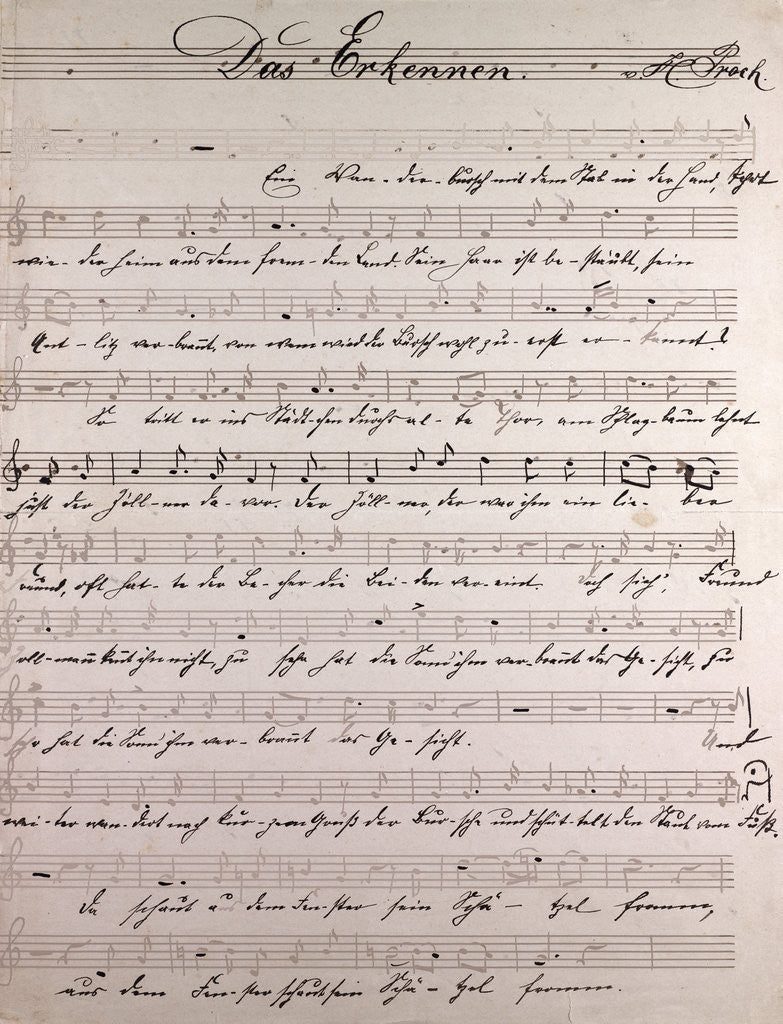 Das Erkennen. v. H. Proch.
Ein Wan - der - bursch mit dem Stab in der Hand, kehrt
wie - der heim aus dem frem - den Land. Sein Haar ist be - stäubt, sein
Ant - litz ver - brannt, von wem wird der Bursch wohl zu - erst er - kannt?
So tritt er ins Städt - chen durchs al - te Thor, am Schlag - baum lehnt
just der Zöll - ner da - vor. Der Zöll - ner, der war ihm ein lie - ber
Freund, oft hat - te der Be - cher die Bei - den ver - eint. Doch sieh', Freund
Zoll - mann kennt ihn nicht, zu sehr hat die Sonn' ihm ver - brannt das Ge - sicht, zu
sehr hat die Sonn' ihm ver - brannt das Ge - sicht. Und
wei - ter wan - dert nach kur - zem Gruß der Bur - sche und schüt - telt den Staub vom Fuß.
Da schaut aus dem Fen - ster sein Schä - tzel fromm,
aus dem Fen - ster schaut sein Schä - tzel fromm.